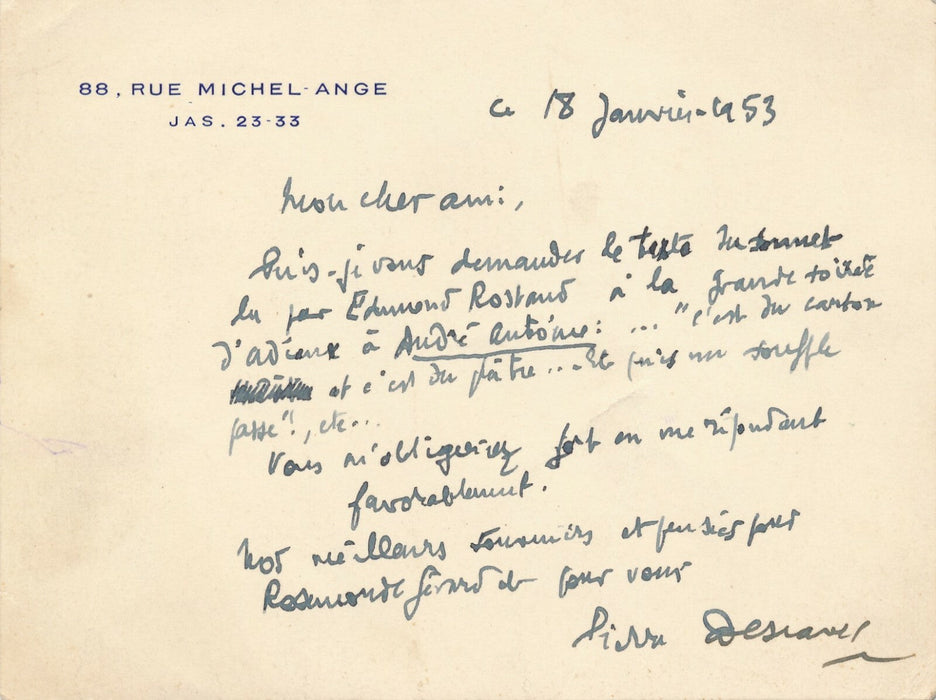 88, RUE MICHEL-ANGE
JAS. 23-33
ce 18 Janvier 1953
Mon cher ami,
Puis-je vous demander le texte du sonnet
lu par Edmond Rostand à la grande soirée
d'adieux à André Antoine : ... "c'est du carton
et c'est du plâtre... Et puis un souffle
passe"!, etc...
Vous m'obligeriez fort en me répondant
favorablement.
Nos meilleurs souvenirs et pensées pour
Rosemonde Gérard et pour vous
Pierre Descaves